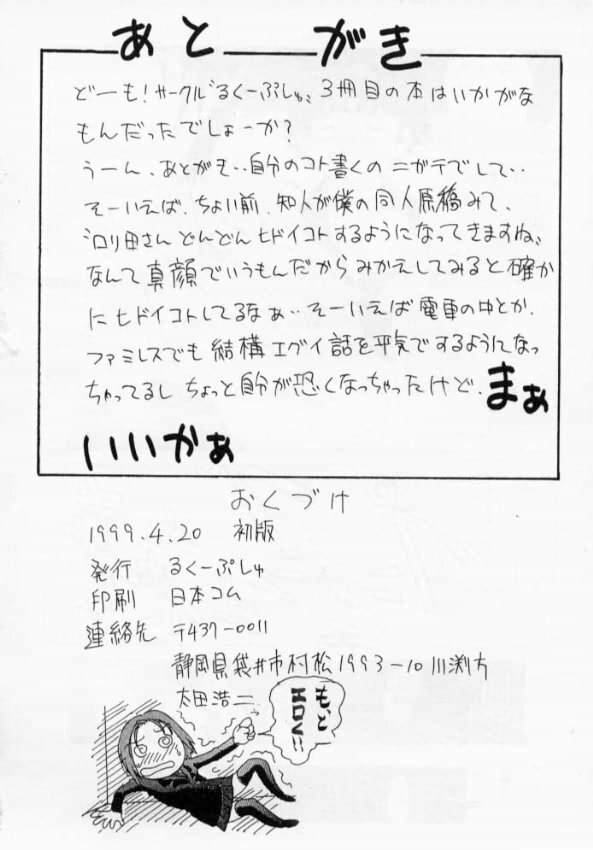 あとがき
どーも!サークル"るくーぷしゅ"、3冊目の本はいかがな
もんだったでしょーか?
うーん、あとがき‥自分のコト書くのニガテでして‥
そーいえば、ちょい前、知人が僕の同人原稿みて、
田さんどんどんヒドイコトするようになってきますね"
なんて真顔でいうもんだからみかえしてみると確か
にヒドイコトしてるなぁ‥そーいえば電車の中とか、
ファミレスでも結構エグイ話を平気でするようになっ
ちゃってるしちょっと自分が恐くなっちゃったけど、まぁ
いいかぁ
おくづけ
1999.4.20 初版
発行 るくーぷしゅ
印刷 日本コム
連絡先 〒437-0011
静岡県袋井市村松1993-10川渕方
太田浩二
もっと
エロく!!